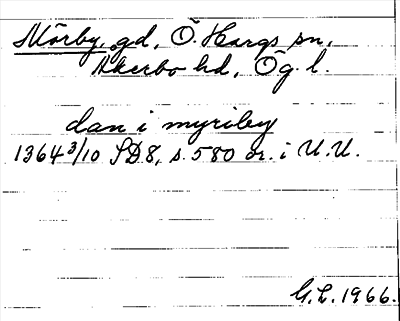 Mörby, gd, Ö. Hargs sn,
Åkerbo hd, Ög. l.
dan i myriby
1364 3/10 SD8, s. 580 or. i U.U.
G.L. 1966.